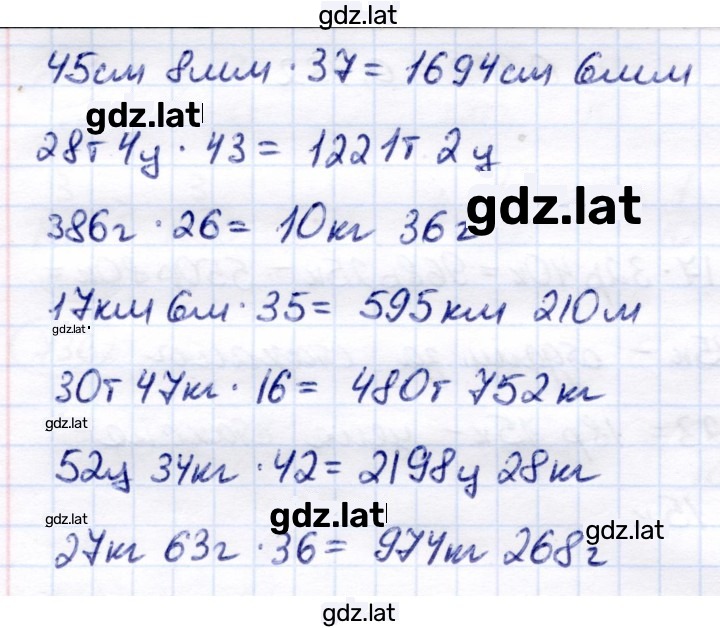 gdz.lat
45см 8мм · 37 = 1694см 6мм
gdz.lat
28т 4ц · 43 = 1221т 2ц
gdz.lat
386г · 26 = 10кг 36г
17км 6м · 35 = 595км 210м
gdz.lat
30т 47кг · 16 = 480т 752кг
gdz.lat
52ц 34кг · 42 = 2198ц 28кг
gdz.lat
gdz.lat
gdz.lat
27кг 63г · 36 = 974кг 268г
gdz.lat